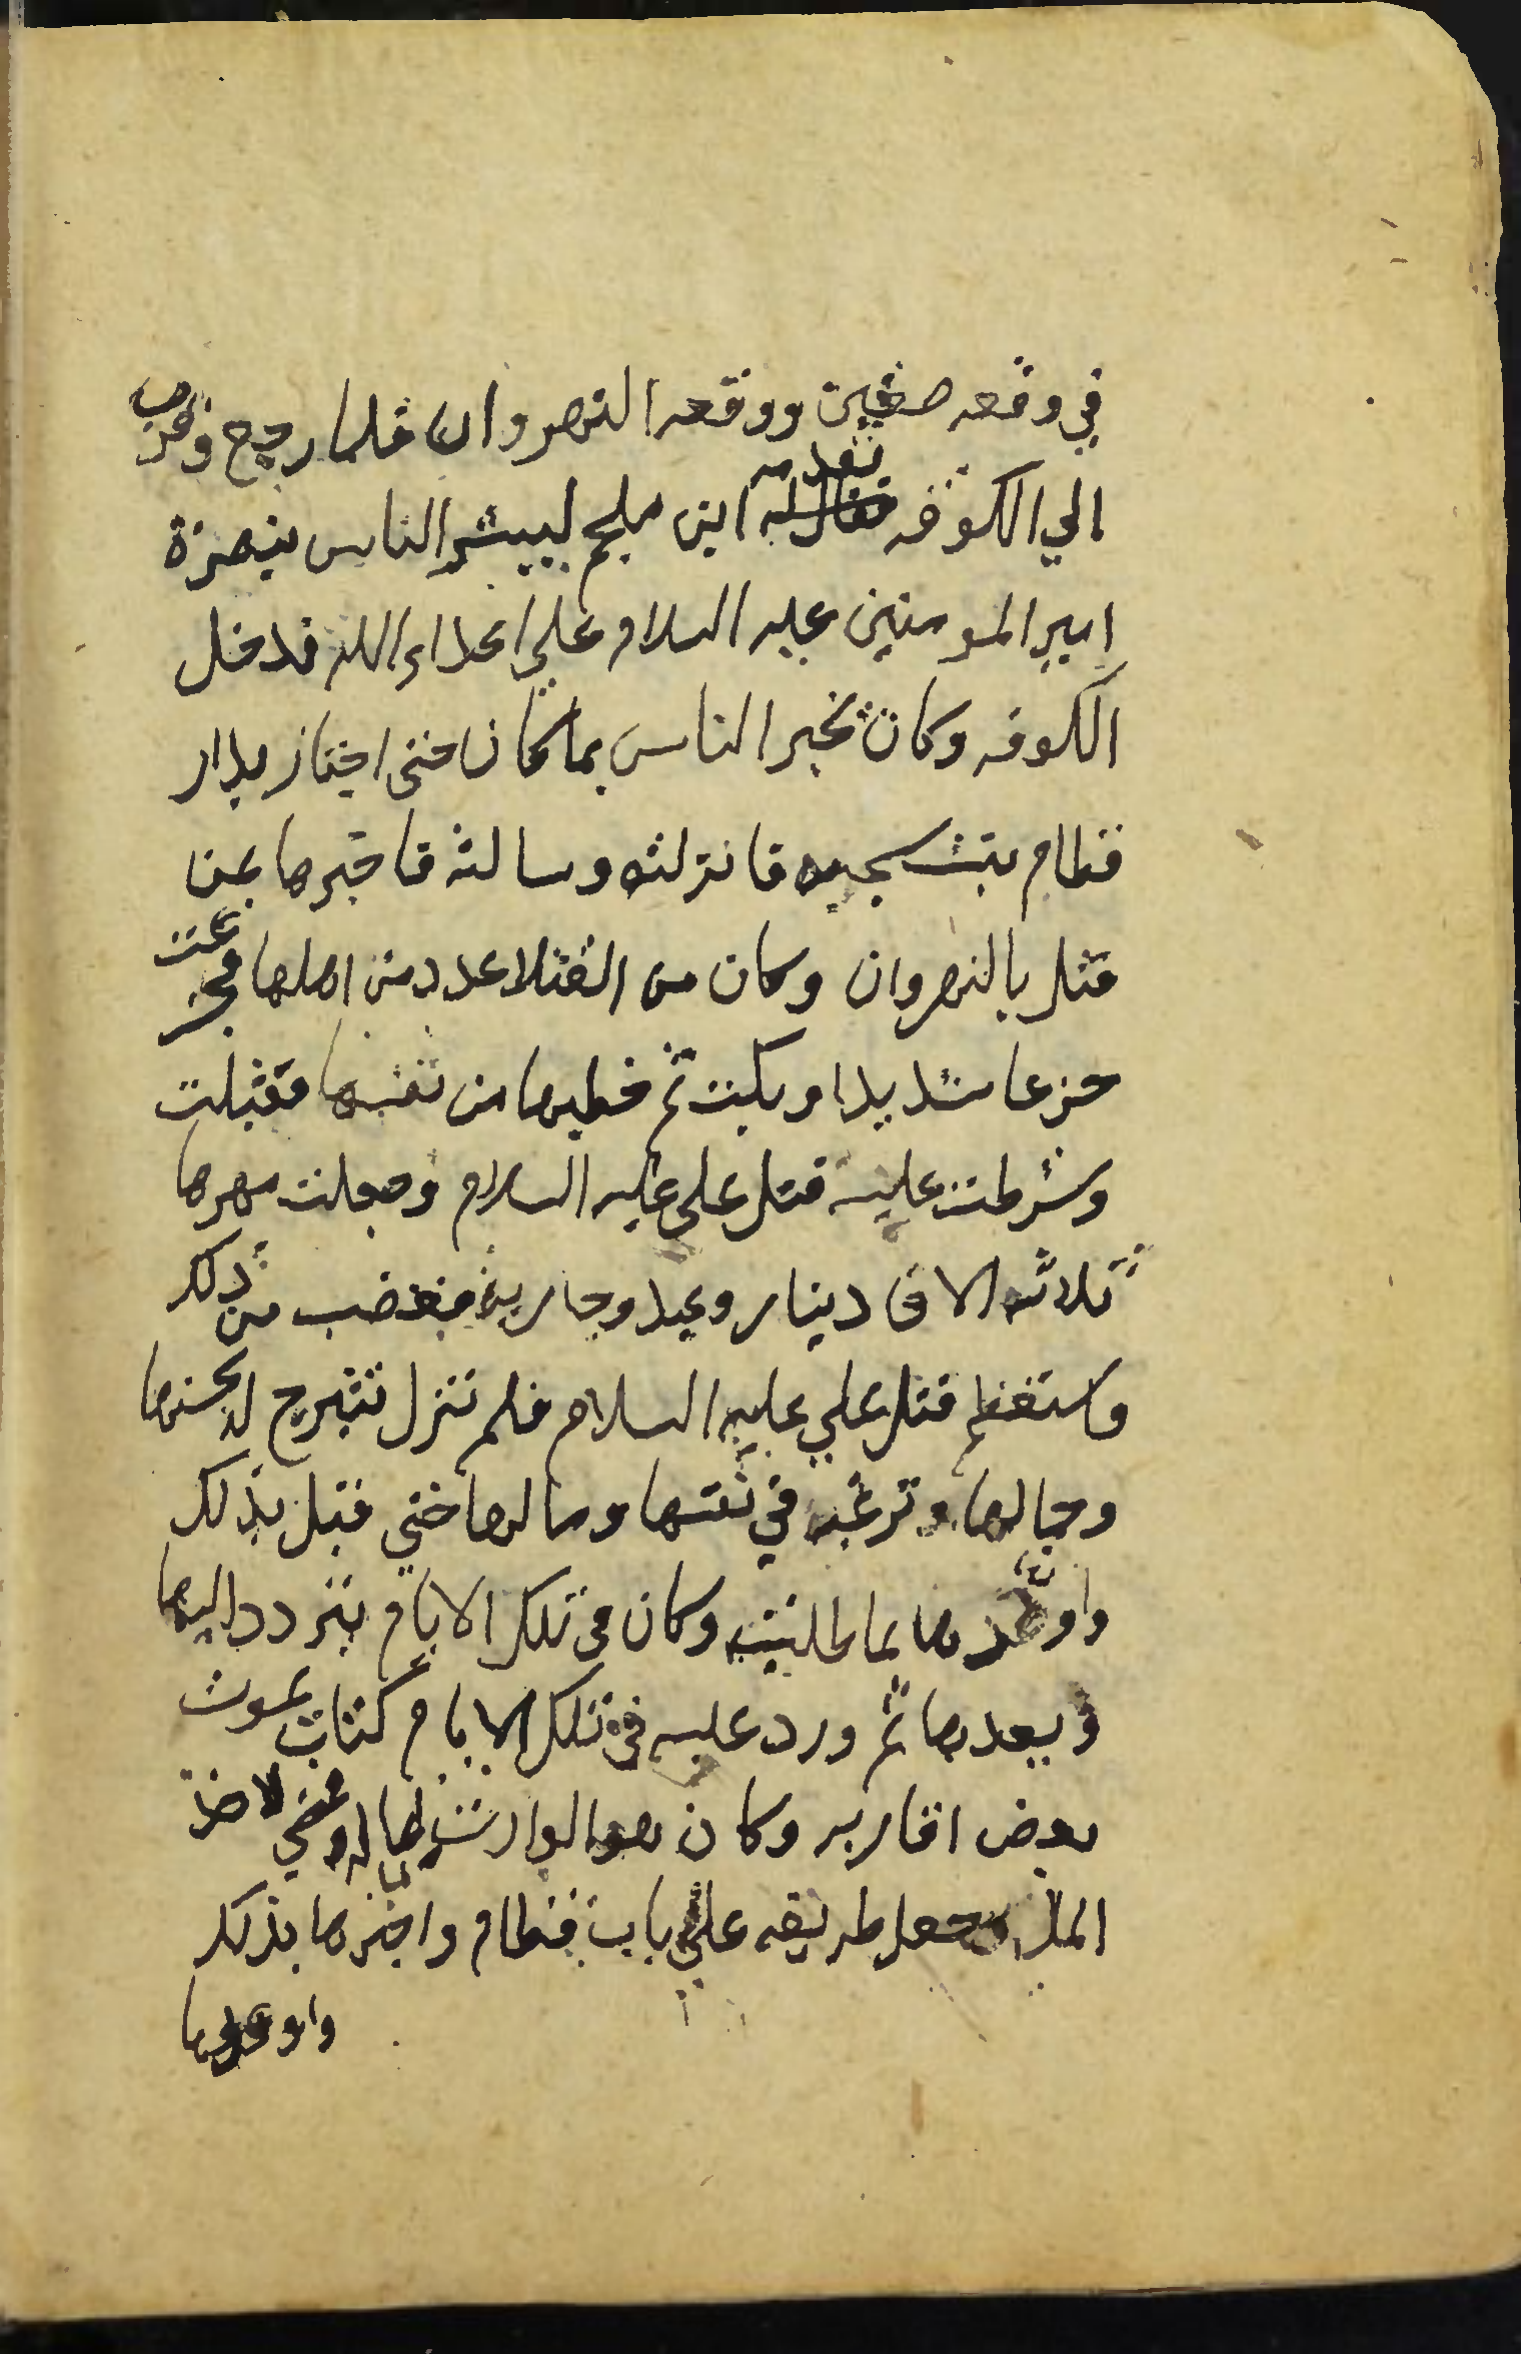 في وقعه صفين ووقعه النهروان فلما رجع وقرب
الي الكوفه تقدمه ابن ملجم ليبشر الناس بنصرة
امير المومنين عليه السلام علي اعداء الله فدخل
الكوفه وكان يخبر الناس بما كان حتى اجتاز بدار
قطام بنت فانزلته وسالته فاخبرها بمن
قتل بالنهروان وكان من القتلا عدد من اهلها فجزعت
جزعا شديدا وبكت ثم خطبها من نفسها فقبلت
وشرطت عليه قتل على عليه السلام وجعلت مهرها
ثلاثه الاف دينار وعبد وجاريه فغضب من ذلك
واستعظم قتل علي عليه السلام فلم تنزل تتبرج له بحسنها
وجمالها وترغبه في نفسها ومالها حتي قبل بذلك
واوعدها بما طلبته وكان في تلك الايام يتردد اليها
ويعدها ثم ورد عليه في تلك الايام كتاب بموت
بعض اقاربه وكان هو الوارث لماله ومضي لاخذ
المال وجعل طريقه علي باب قطام واخبرها بذلك
واوعدها